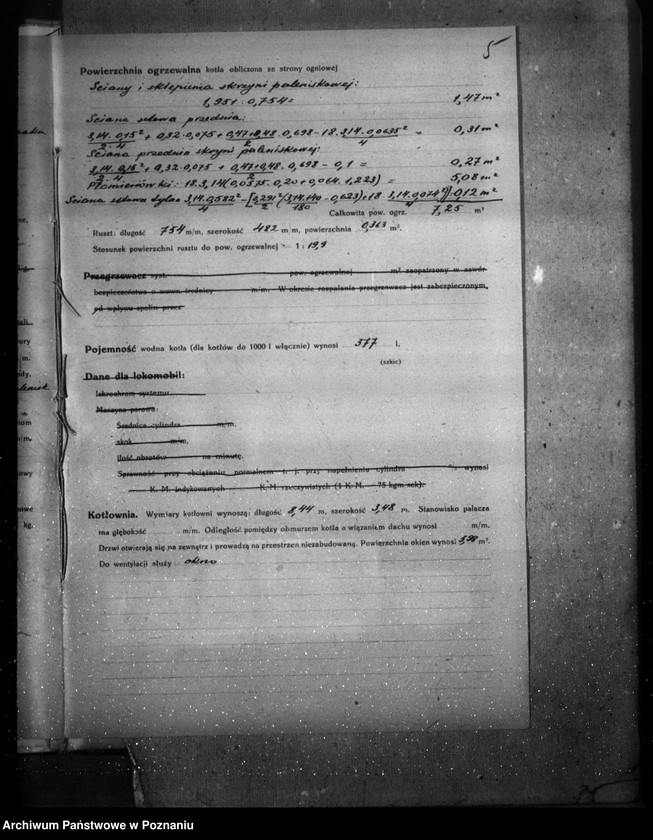 5
Powierzchnia ogrzewalna kotła obliczona ze strony ogniowej
Ściany i sklepienia skrzyni paleniskowej:
1,951 · 0,754 = 1,47 m²
Ściana sitowa przednia:
3,14 · 0,15² / 2 · 4 + 0,32 · 0,075 + 0,47+0,48 / 2 · 0,698 - 18 · 3,14 · 0,0635² / 4 = 0,31 m²
Ściana przednia skrzyni paleniskowej:
3,14 · 0,15² / 2 · 4 + 0,32 · 0,075 + 0,47+0,48 / 2 · 0,698 - 0,1 = 0,27 m²
Płomieniówki: 18 · 3,14 (0,0575 · 0,20 + 0,064 · 1,223) = 5,08 m²
Ściana sitowa tylna 3,14 · 0,582² / 4 - [0,291² / 2 (3,14 · 140 / 180 - 0,623) + 18 · 3,14 · 0,074² / 4] 0,12 m²
Całkowita pow. ogrz. 7,25 m²
Ruszt: długość 754 m/m, szerokość 482 m/m, powierzchnia 0,363 m².
Stosunek powierzchni rusztu do pow. ogrzewalnej = 1 : 19,9
Przegrzewacz syst. pow. ogrzewalnej m² zaopatrzony w zawór
bezpieczeństwa o wewn. średnicy m/m. W okresie rozpalania przegrzewacz jest zabezpieczonym,
od wpływu spalin przez
Pojemność wodna kotła (dla kotłów do 1000 l włącznie) wynosi 377 l.
(szkic)
Dane dla lokomobil:
Iskrochron systemu
Maszyna parowa:
Średnica cylindra m/m.
skok m/m.
ilość obrotów na minutę.
Sprawność przy obciążeniu normalnem t. j. przy napełnieniu cylindra %, wynosi
K. M. indykowanych K. M. rzeczywistych (1 K. M. = 75 kgm sek).
Kotłownia. Wymiary kotłowni wynoszą: długość 8,44 m, szerokość 3,48 m. Stanowisko palacza
ma głębokość m/m. Odległość pomiędzy obmurzem kotła a wiązaniem dachu wynosi m/m.
Drzwi otwierają się na zewnątrz i prowadzą na przestrzeń niezabudowaną. Powierzchnia okien wynosi m².
Do wentylacji służy okno
Archiwum Państwowe w Poznaniu